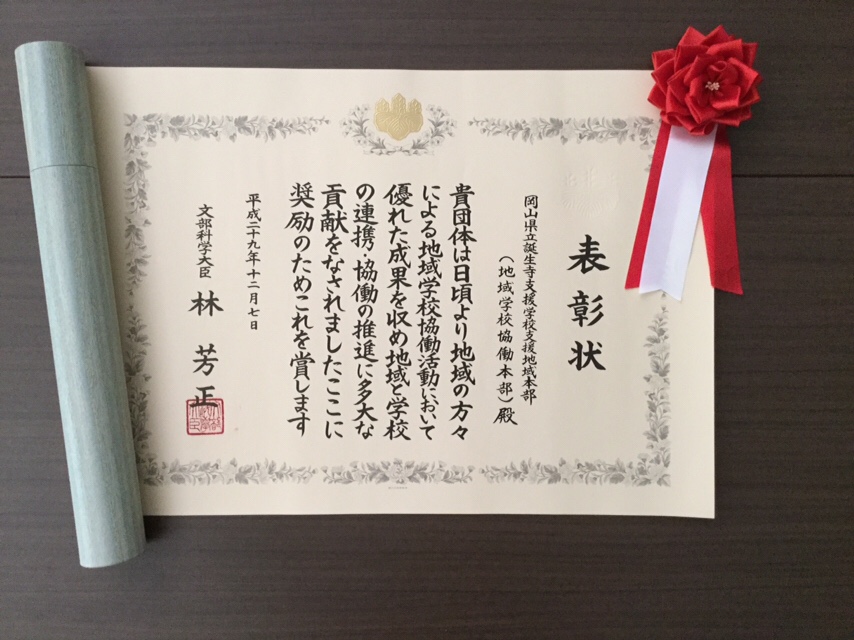 表彰状
岡山県立誕生寺支援学校支援地域本部
（地域学校協働本部）殿
貴団体は日頃より地域の方々
による地域学校協働活動において
優れた成果を収め地域と学校
の連携・協働の推進に多大な
貢献をなされましたここに
奨励のためこれを賞します
平成二十九年十二月七日
文部科学大臣
林芳正